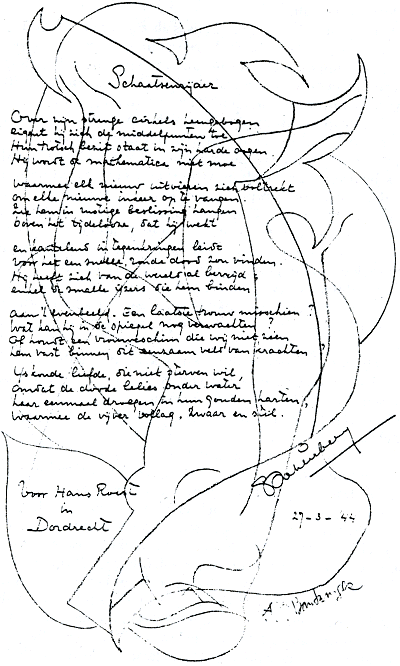 Schaatsenrijder
Over zijn strenge cirkels heengebogen
eigent hij zich de middelpunten toe
Hun trotsch bezit staat in zijn harde oogen
Hij wordt de mathematica niet moe
waarmee elk nieuw uitvieren zich voltrekt
om elke nieuwe inkeer op te vangen
Zie hem in wötige beslissing hangen
boven het tijdelooze, dat hij wekt
en in tegendringen leidt
voor het een snelle, ronde dood zou vinden.
Hij heeft zich van de wereld al bevrijd;
enkel de smalle ijzers die hem binden
aan 't evenbeeld. Een laatste trouw misschien?
Wat kan hij in de spiegel nog verwachten?
Of houdt een vrouweschim die wij niet zien
hem vast binnen dit eenzaam veld van krachten,
IJskoude liefde, die niet sterven wil
omdat de doode lelies onder water
haar eenmaal droegen in hun gouden harten,
waarmee de vijver vollag. Zwaar en stil.
Achterberg
Voor Hans Roest
in
Dordrecht
27-3-'44
A.